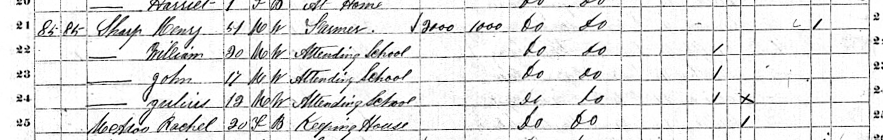 20 — Harriet 1 F B At Home Do Do
21 85 85 Sharp Henry 51 M W Farmer. $2000 1000 Do Do 1
22 — William 20 M W Attending School Do Do 1
23 — John 17 M W Attending School Do Do 1
24 — 12 M W Attending School Do Do 1 x
25 Rachel 20 F B Keeping House Do Do 1